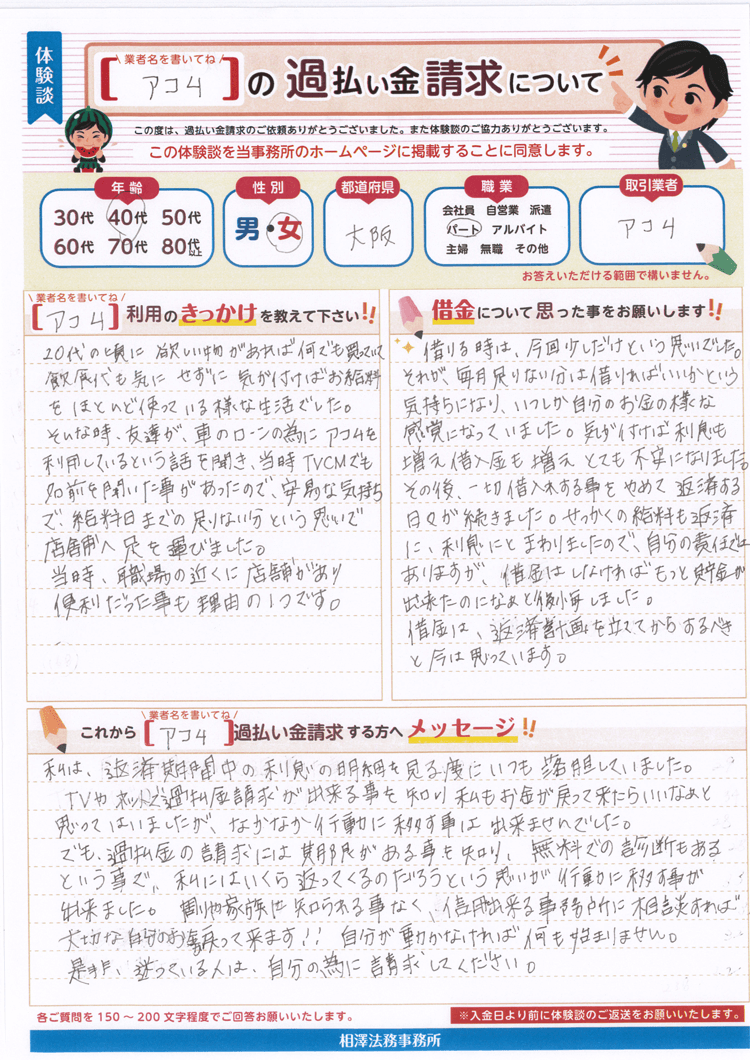 体験談
\ 業者名を書いてね /
[ アコム ] の 過払い金請求について
この度は、過払い金請求のご依頼ありがとうございました。また体験談のご協力ありがとうございます。
この体験談を当事務所のホームページに掲載することに同意します。
年齢
30代 40代 50代
60代 70代 80代以上
性別
男・女
都道府県
大阪
職業
会社員 自営業 派遣
パート アルバイト
主婦 無職 その他
取引業者
アコム
お答えいただける範囲で構いません。
\ 業者名を書いてね /
[ アコム ] 利用のきっかけを教えて下さい!!
20代の頃に欲しい物があれば何でも買っていて
飲食代も気にせずに気が付けばお給料
をほとんど使っている様な生活でした。
そんな時、友達が、車のローンの為にアコムを
利用しているという話を聞き、当時TVCMでも
名前を聞いた事があったので、安易な気持ち
で、給料日までの足りない分という思いで
店舗へ足を運びました。
当時、職場の近くに店舗があり
便利だった事も理由の1つです。
借金について思った事をお願いします!!
借りる時は、今回少しだけという思いでした。
それが、毎月足りない分は借りればいいかという
気持ちになり、いつしか自分のお金の様な
感覚になっていました。気が付けば利息も
増え借入金も増えとても不安になりました。
その後、一切借入れする事をやめて返済する
日々が続きました。せっかくの給料も返済
に、利息にとまわりましたので、自分の責任では
ありますが、借金はしなければもっと貯金が
出来たのになぁと後悔しました。
借金は、返済計画を立ててからするべき
と今は思っています。
これから
\ 業者名を書いてね /
[ アコム ] 過払い金請求する方へメッセージ!!
私は、返済期間中の利息の明細を見る度にいつも落胆していました。
TVやネットで過払金請求が出来る事を知り私もお金が戻って来たらいいなぁと
思ってはいましたが、なかなか行動に移す事は出来ませんでした。
でも、過払金の請求には期限がある事を知り、無料での診断もある
という事で、私にはいくら返ってくるのだろうという思いが行動に移す事が
出来ました。周りや家族に知られる事なく、信用出来る事務所に相談すれば
大切な自分のお金戻って来ます!! 自分が動かなければ何も始まりません。
是非、迷っている人は、自分の為に請求してください。
各ご質問を150～200文字程度でご回答お願いいたします。
※入金日より前に体験談のご返送をお願いいたします。
相澤法務事務所